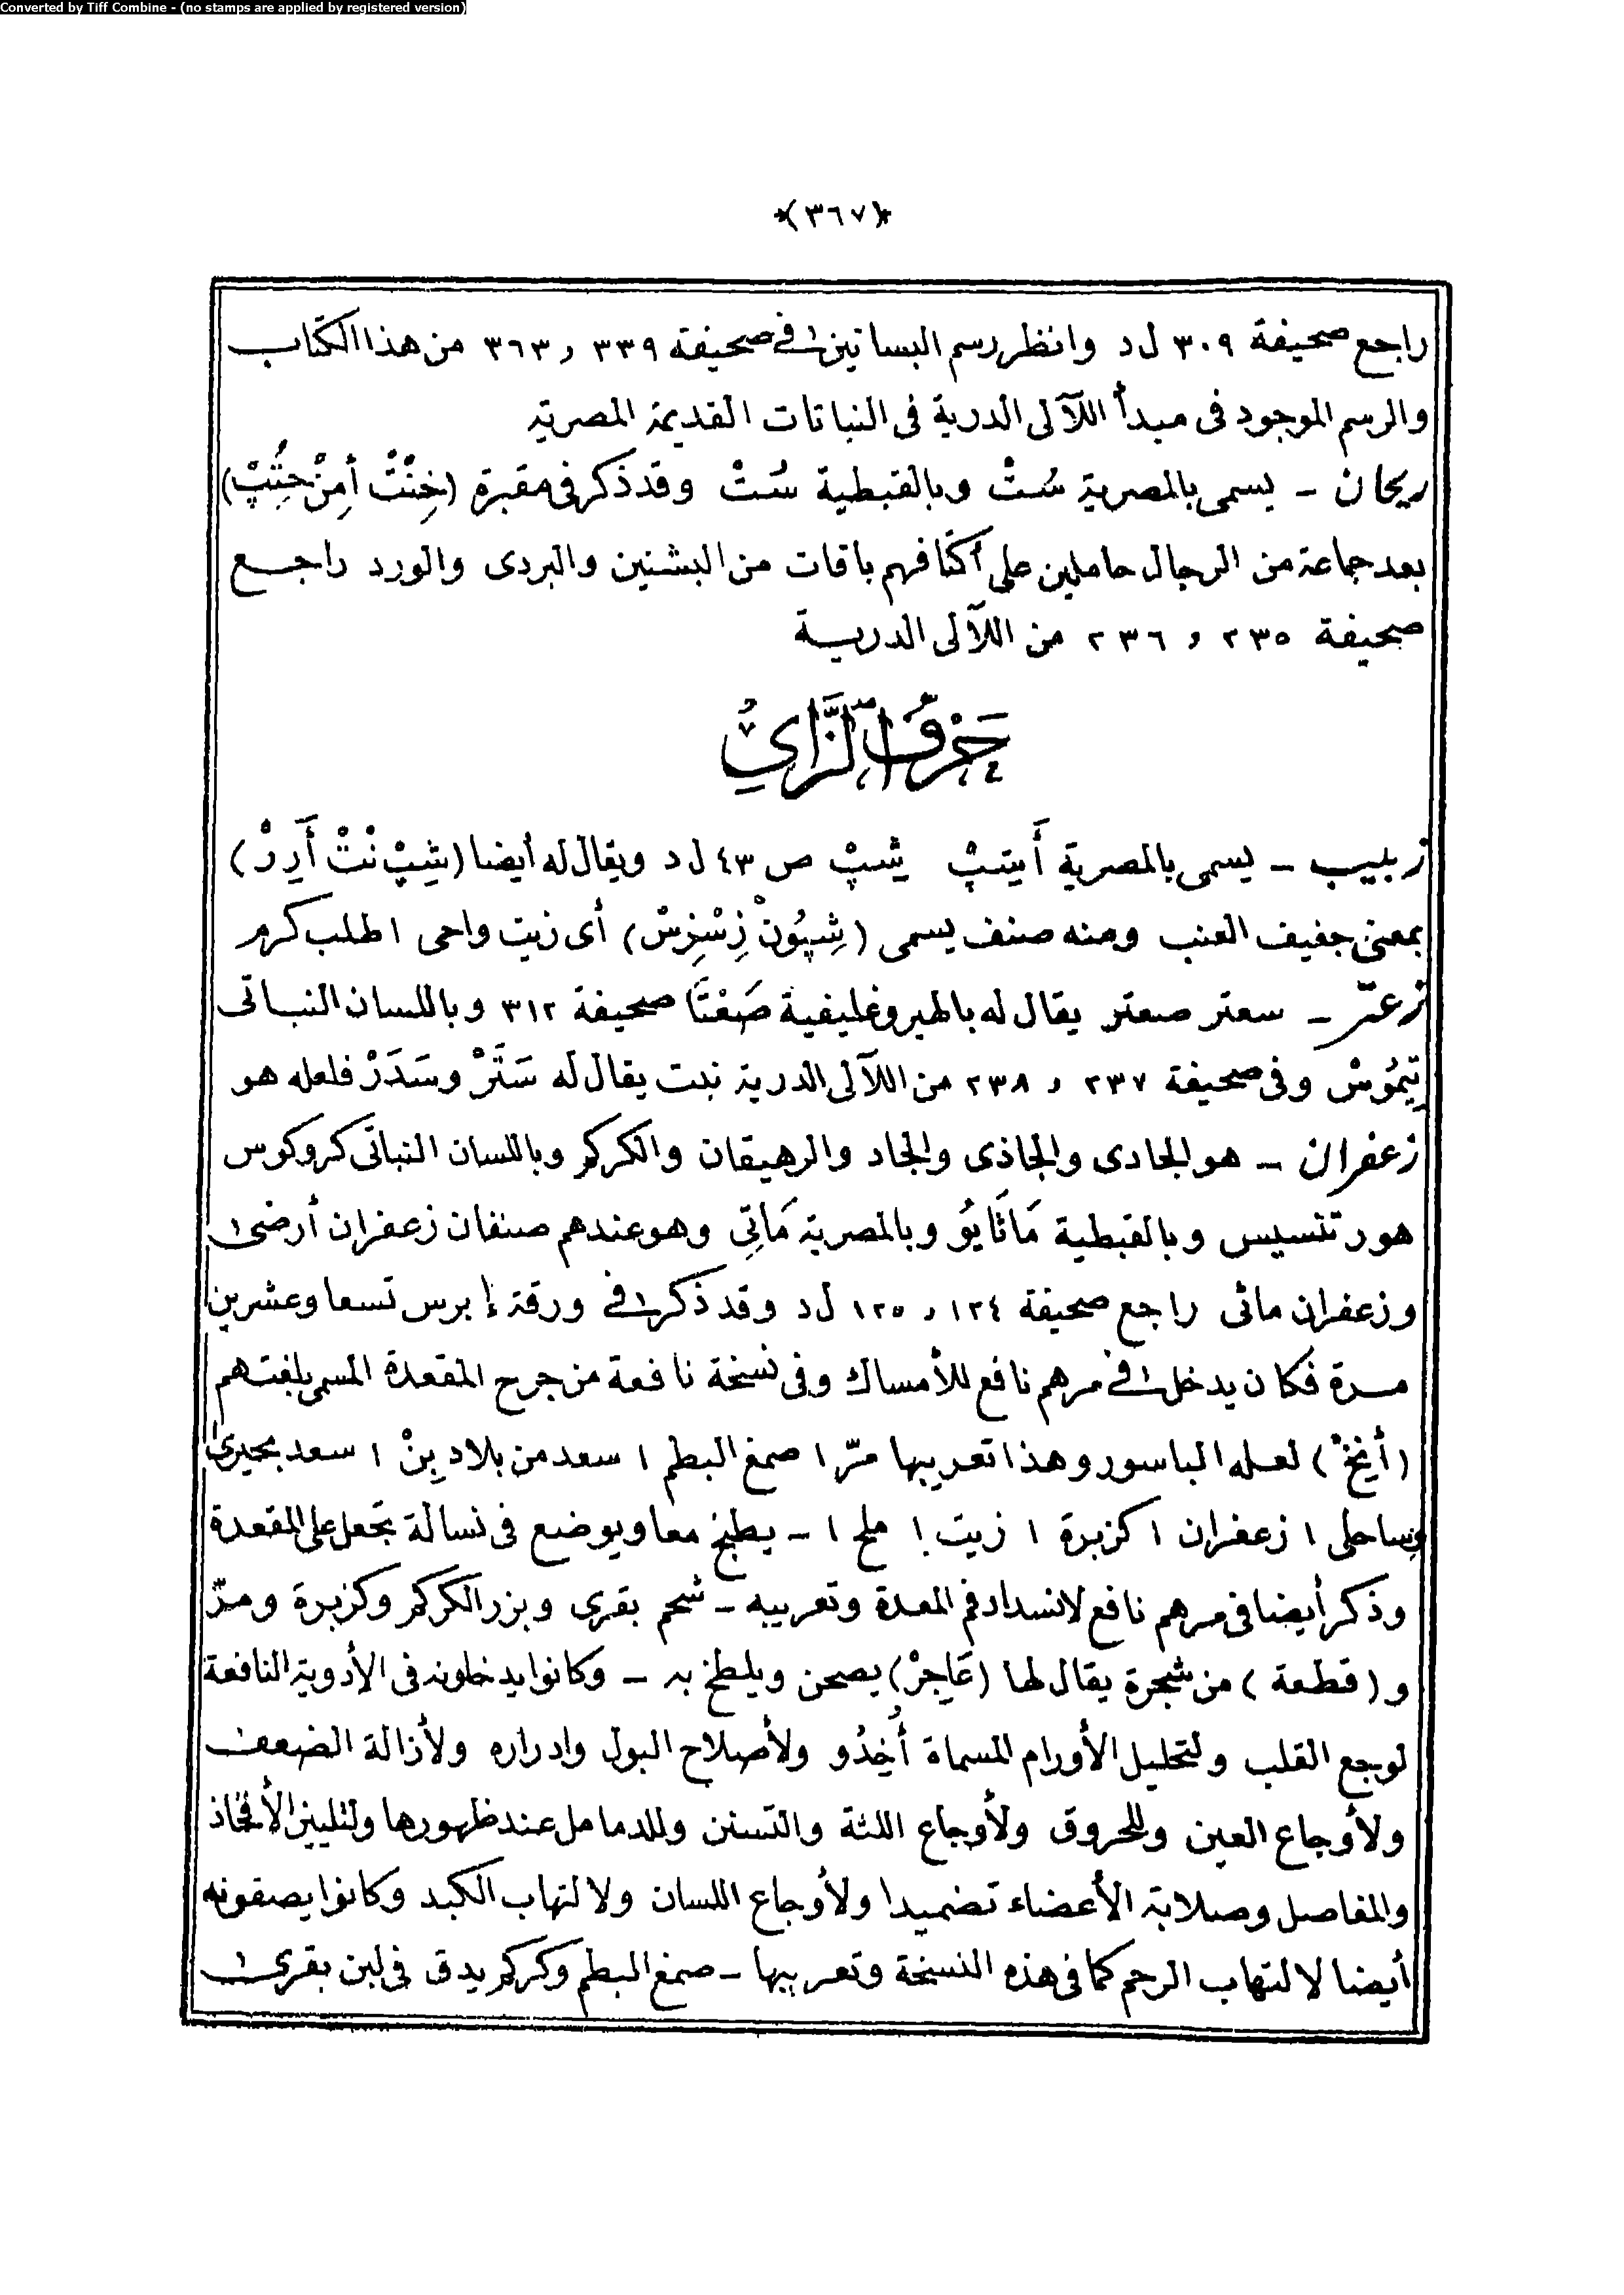 Converted by Tiff Combine - (no stamps are applied by registered version)
﴿٣٦٧﴾
راجع صحيفة ٣٠٩ ل د وانظر رسم البساتين فى صحيفة ٣٣٩ و ٣٦٣ من هذا الكتاب
والرسم الموجود فى مبدأ اللآلى الدرية فى النباتات القديمة المصرية
ريحان - يسمى بالمصرية سُتْ وبالقبطية سُتْ وقد ذكر فى مقبرة (خِنْتْ أمِنْ حِتُبْ)
بعد جماعة من الرجال حاملين على أكتافهم باقات من البشنين والبردى والورد راجع
صحيفة ٢٣٥ و ٢٣٦ من اللآلى الدرية
حَرْفُ الزَّاي
زبيب - يسمى بالمصرية أَيتپْ شپْ ص ٤٣ ل د ويقال له أيضا (شِپْ نْتْ أَرِرْ)
بمعنى جفيف العنب ومنه صنف يسمى (شِپُونْ زِسْزِسْ) أى زيت واحى اطلب كرم
زعتر - سعتر صعتر يقال له بالهيروغليفية صَعْتَا صحيفة ٣١٢ وباللسان النباتى
تِيمُوسْ وفى صحيفة ٢٣٧ و ٢٣٨ من اللآلى الدرية نبت يقال له سَتَرْ وسَدَرْ فلعله هو
زعفران - هو الجادى والجاذى والجاد والرهيقان والكركم وباللسان النباتى كروكوس
هورتنسيس وبالقبطية مَاتَايُو وبالمصرية مَاتِى وهو عندهم صنفان زعفران أرضى
وزعفران مائى راجع صحيفة ١٢٤ و ١٢٥ ل د وقد ذكر فى ورقة إبرس تسعا وعشرين
مرة فكان يدخل فى مرهم نافع للأمساك وفى نسخة نافعة من جرح المقعدة المسمى بلغتهم
(أَيَخْ) لعله الباسور وهذا تعريبها مرّ ١ صمغ البطم ١ سعد من بلاد بِنْ ١ سعد بحيرى
وساحلى ١ زعفران ١ كزبرة ١ زيت ١ ملح ١ - يطبخ معا ويوضع فى نسالة تجعل على المقعدة
وذكر أيضا فى مرهم نافع لانسداد فم المعدة وتعريبه - شحم بقرى وبزر الكركم وكزبرة ومرّ
و(قطعة) من شجرة يقال لها (عَاجِرْ) يصحن ويلطخ به - وكانوا يدخلونه فى الأدوية النافعة
لوجع القلب ولتحليل الأورام المسماة أُخِدُو ولأصلاح البول وادراره ولأزالة الضعف
ولأوجاع العين وللحروق ولأوجاع اللثة والتسنن وللدمامل عند ظهورها ولتليين الأفخاذ
والمفاصل وصلابة الأعضاء تضميدا ولأوجاع اللسان ولالتهاب الكبد وكانوا يصفونه
أيضا لالتهاب الرحم كما فى هذه النسخة وتعريبها - صمغ البطم وكركم يدق فى لبن بقرى